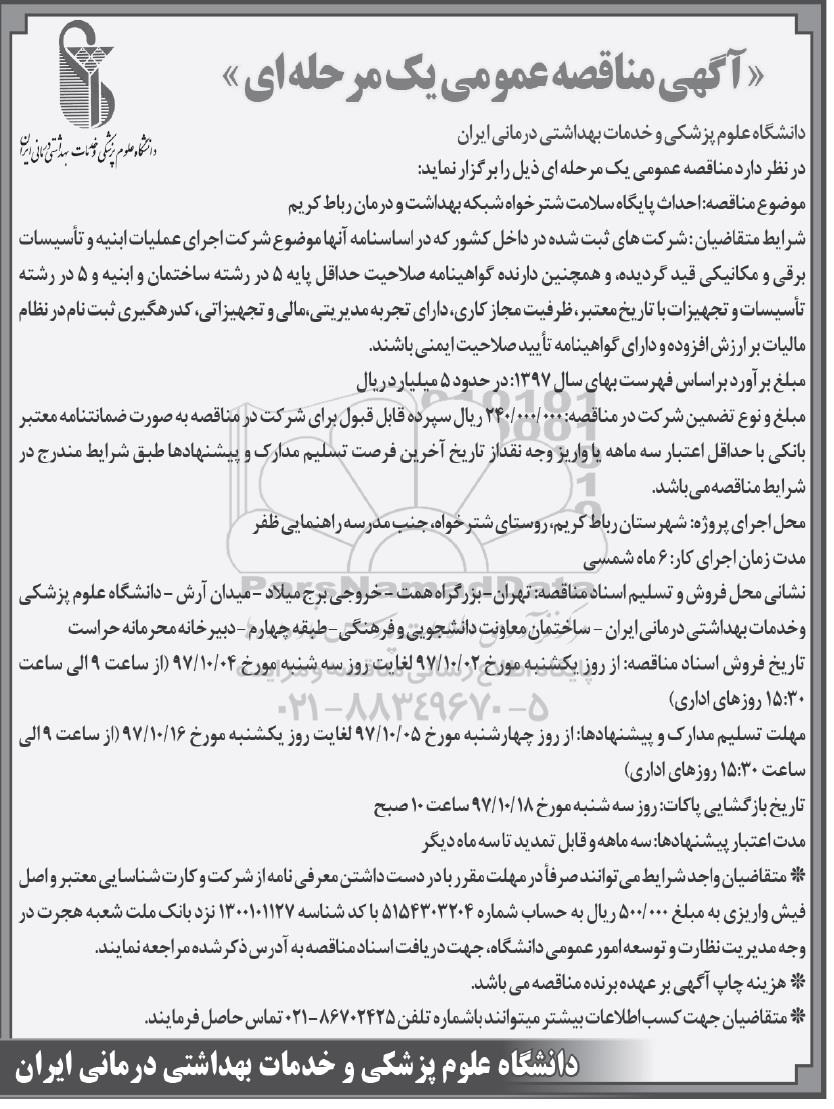 دانشگاه علوم پزشکی و خدمات بهداشتی درمانی ایران
«آگهی مناقصه عمومی یک مرحله ای»
دانشگاه علوم پزشکی و خدمات بهداشتی درمانی ایران
در نظر دارد مناقصه عمومی یک مرحله ای ذیل را برگزار نماید:
موضوع مناقصه: احداث پایگاه سلامت شترخواه شبکه بهداشت و درمان رباط کریم
شرایط متقاضیان: شرکت های ثبت شده در داخل کشور که در اساسنامه آنها موضوع شرکت اجرای عملیات ابنیه و تأسیسات
برقی و مکانیکی قید گردیده، و همچنین دارنده گواهینامه صلاحیت حداقل پایه ۵ در رشته ساختمان و ابنیه و ۵ در رشته
تأسیسات و تجهیزات با تاریخ معتبر، ظرفیت مجاز کاری، دارای تجربه مدیریتی، مالی و تجهیزاتی، کدرهگیری ثبت نام در نظام
مالیات بر ارزش افزوده و دارای گواهینامه تأیید صلاحیت ایمنی باشند.
مبلغ برآورد براساس فهرست بهای سال ۱۳۹۷: در حدود ۵ میلیارد ریال
مبلغ و نوع تضمین شرکت در مناقصه: ۲۴۰/۰۰۰/۰۰۰ ریال سپرده قابل قبول برای شرکت در مناقصه به صورت ضمانتنامه معتبر
بانکی با حداقل اعتبار سه ماهه یا واریز وجه نقد از تاریخ آخرین فرصت تسلیم مدارک و پیشنهادها طبق شرایط مندرج در
شرایط مناقصه می باشد.
محل اجرای پروژه: شهرستان رباط کریم، روستای شترخواه، جنب مدرسه راهنمایی ظفر
مدت زمان اجرای کار: ۶ ماه شمسی
ParsNamadData
نشانی محل فروش و تسلیم اسناد مناقصه: تهران- بزرگراه همت - خروجی برج میلاد - میدان آرش - دانشگاه علوم پزشکی
و خدمات بهداشتی درمانی ایران - ساختمان معاونت دانشجویی و فرهنگی - طبقه چهارم - دبیرخانه محرمانه حراست
تاریخ فروش اسناد مناقصه: از روز یکشنبه مورخ ۹۷/۱۰/۰۲ لغایت روز سه شنبه مورخ ۹۷/۱۰/۰۴ (از ساعت ۹ الی ساعت
پایگاه اطلاع رسانی مناقصه و مزایده
۱۵:۳۰ روزهای اداری)
۰۲۱-۸۸۳۴۹۶۷۰-۵
مهلت تسلیم مدارک و پیشنهادها: از روز چهارشنبه مورخ ۹۷/۱۰/۰۵ لغایت روز یکشنبه مورخ ۹۷/۱۰/۱۶ (از ساعت ۹ الی
ساعت ۱۵:۳۰ روزهای اداری)
تاریخ بازگشایی پاکات: روز سه شنبه مورخ ۹۷/۱۰/۱۸ ساعت ۱۰ صبح
مدت اعتبار پیشنهادها: سه ماهه و قابل تمدید تا سه ماه دیگر
* متقاضیان واجد شرایط می توانند صرفاً در مهلت مقرر با در دست داشتن معرفی نامه از شرکت و کارت شناسایی معتبر و اصل
فیش واریزی به مبلغ ۵۰۰/۰۰۰ ریال به حساب شماره ۵۱۵۴۳۰۳۲۰۴ با کد شناسه ۱۳۰۰۱۰۱۱۲۷ نزد بانک ملت شعبه هجرت در
وجه مدیریت نظارت و توسعه امور عمومی دانشگاه، جهت دریافت اسناد مناقصه به آدرس ذکر شده مراجعه نمایند.
* هزینه چاپ آگهی بر عهده برنده مناقصه می باشد.
* متقاضیان جهت کسب اطلاعات بیشتر میتوانند با شماره تلفن ۸۶۷۰۲۴۲۵-۰۲۱ تماس حاصل فرمایند.
دانشگاه علوم پزشکی و خدمات بهداشتی درمانی ایران